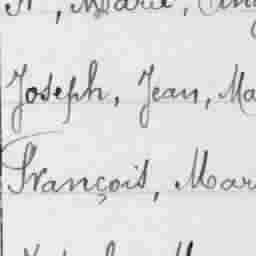 , Marie,
Joseph, Jean, Ma
François, Mar